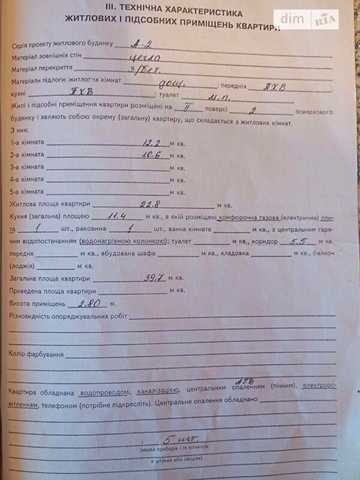 dim RIA
III. ТЕХНІЧНА ХАРАКТЕРИСТИКА
ЖИТЛОВИХ І ПІДСОБНИХ ПРИМІЩЕНЬ КВАРТИРИ
Серія проекту житлового будинку А-2
Матеріал зовнішніх стін цегла
Матеріал перекриття з/бет.
Матеріали підлоги: житлогі кімнат дощ. передніх ПХВ
кухні ПХВ туалет м.п.
Жилі і підсобні приміщення квартири розміщені на II поверсі 2 поверхового
будинку і являють собою окрему (загальну) квартиру, що складається з житлових кімнат.
З них:
1-а кімната 12.2 м кв.
2-а кімната 10.6 м кв.
3-а кімната м кв.
4-а кімната м кв.
5-а кімната м кв.
Житлова площа квартири 22.8 м кв.
Кухня (загальна) площею 11.4 м кв., в якій розміщені комфорочна газова (електрична) пли-
та 1 шт., раковина 1 шт., ванна кімната м кв., з центральним гаря-
чим водопостачанням (водонагрівною колонкою); туалет м кв., коридор 5.5 м кв.
передня м кв., вбудована шафа м кв., кладовка м кв., балкон
(лоджія) м кв.
Загальна площа квартири 39.7 м кв.
Приведена площа квартири м кв.
Висота приміщень 2.80 м.
Різновидність опоряджувальних робіт
Колір фарбування
АГВ
Квартира обладнана водопроводом, каналізацією, центральним опаленням (пічним), електроос-
вітленням, телефоном (потрібне підкреслити). Центральне опалення обладнано:
5 шт.